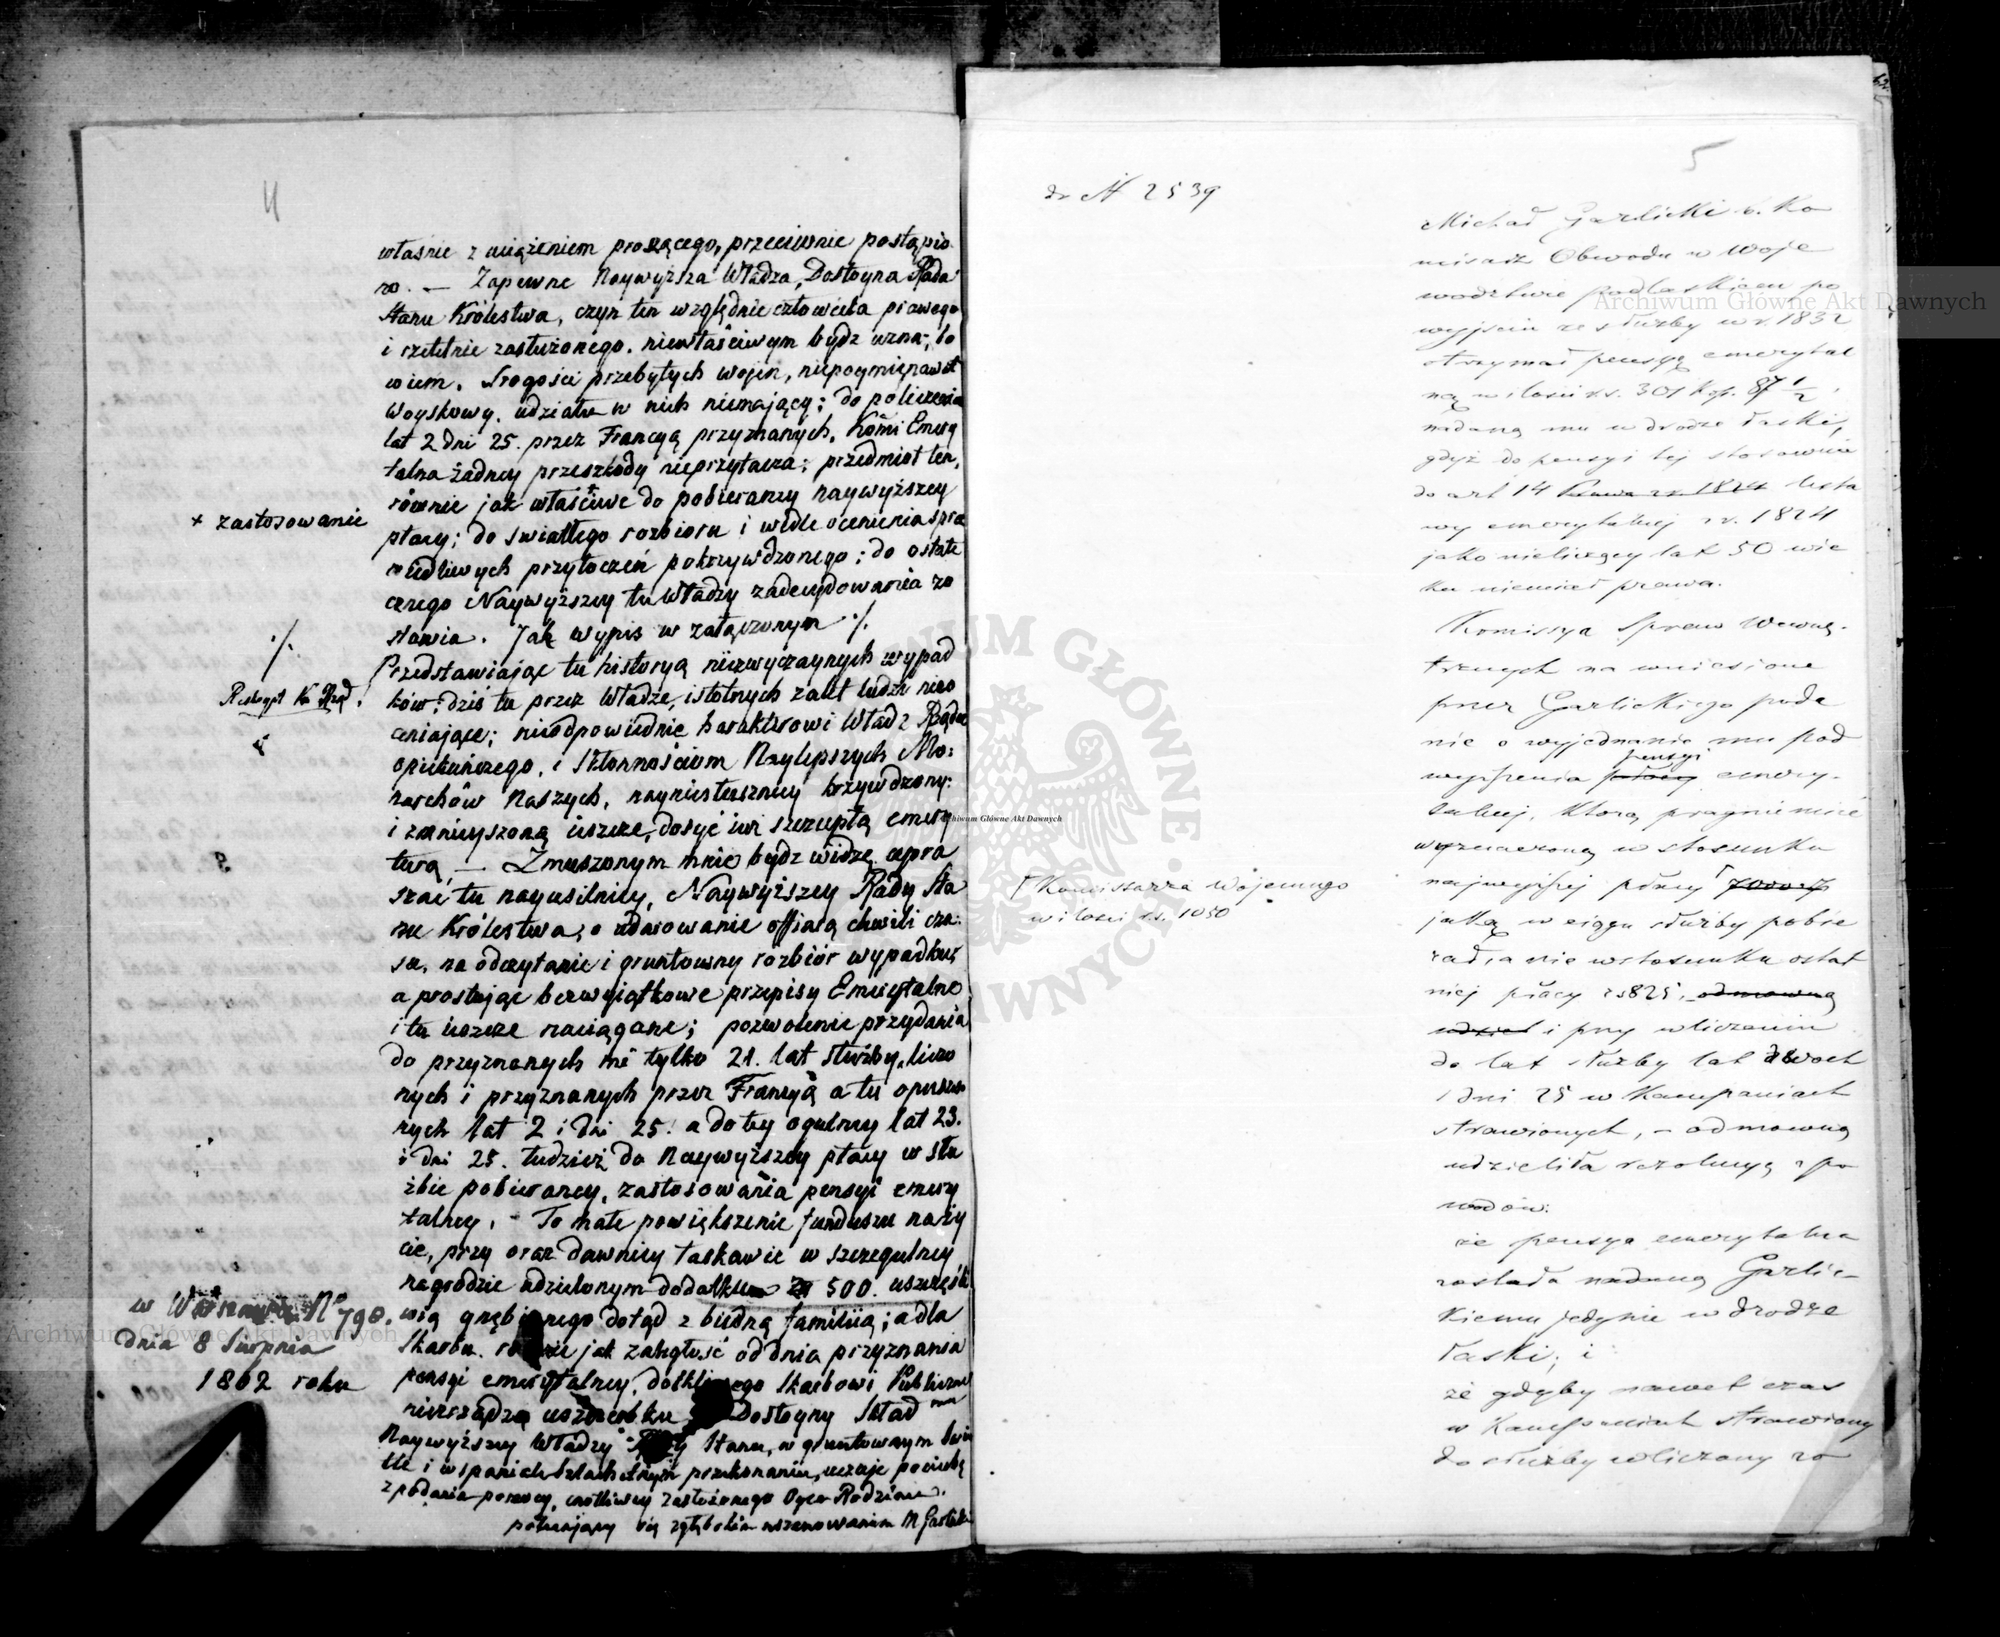 4
własnie z uciążeniem proszącego, przeciwnie postąpio
no. — Zapewne Naywyższa Władza, Dostoyna Rada
Stanu Królestwa, czyn ten względnie człowieka prawego
i rzetelnie zasłużonego, niewłaściwym bydz uzna; bo
wiem, srogości przebytych wojen, niepoymie nawet
Woyskowy, udziału w nich niemający; do policzenia
lat 2 dni 25. przez Francyą przyznanych, Kōmi Emery
talna żadney przeszkody nieprzytacza; przedmiot ten,
równie jak właściwe do pobieraney naywyższey
+ zastosowanie
płacy; do swiatłego rozbioru i wedle ocenienia spra
wiedliwych przytoczeń pokrzywdzonego; do ostate
cznego Naywyższey tu Władzy zadecydowania zo
stawia. Jak wypis w załączonym ·/.
·/.
Reskrypt Kn Rząd.
Przedstawiając tu historyą niezwyczaynych wypad
ków; dziś tu przez Władze, istotnych zalet ludzi nieo
ceniające; nieodpowiednie charakterowi Władz Rządu
opiekuńczego, i skłonnościom Naylepszych Mo:
narchów Naszych, nayniesłuszniey krzywdzony:
i zmnieyszoną ieszcze, dosyć iuż szczupłą emery
turą — Zmuszonym mnie bydz widzę upra
szać tu nayusilniey, Naywyższey Rady Sta
nu Królestwa, o udarowanie offiarą chwili cza:
su, na odczytanie i gruntowny rozbiór wypadku;
a prostując bezwyiątkowe przepisy Emerytalne
i tu ieszcze naciągane; pozwolenie przydania
do przyznanych mi tylko 21. lat służby, liczo
nych i przyznanych przez Francyą a tu opuszczo
nych lat 2 i dni 25. a do tey ogulney lat 23.
i dni 25. tudzież do Naywyższey płacy w słu
żbie pobieraney, zastosowania pensyi emery
talney. - To małe powiększenie funduszu na ży
cie, przy oraz dawniey łaskawie w szczegulney
nagrodzie udzielonym dodatku zł 500. uszczęśli
w Warszawie No 790.
dnia 8 Sierpnia
1862 roku
wią gnębionego dotąd z biedną familiią; a dla
Skarbu, równie jak zaległość od dnia przyznania
pensyi emerytalney, dotkliwego Skarbowi Publiczne
mu
niezrządzą uszczerbku. Dostoyny Skład
Naywyższey Władzy Rady Stanu, w gruntownym świa
tle i wspaniale szlachetnym przekonaniu, uczuje pociechę
z podania pomocy, cnotliwey zasłużonego Oyca Rodzinie.
polecający się z głębokim uszanowaniem M Garlicki
5
do N 2539
Michał Garlicki b. Ko
misarz Obwodu w Woje
wodztwie podlaskiem po
wyjściu ze służby w r. 1832
otrzymał pensyę emerytal
ną w ilości r.s. 301 kop. 87 1/2,
nadaną mu w drodze łaski,
gdyż do pensyi tej stosownie
do art 14 Prawa z r. 1824 Usta
wy emerytalnej z r. 1824
jako nieliczący lat 50 wie
ku niemiał prawa.
Komissya Spraw Wewnę-
trznych na wniesione
przez Garlickiego poda
nie o wyjednanie mu pod
pensyi
wyższenia płacy emery-
talnej, którą pragnie mieć
wyznaczoną w stosunku
najwyższej płacy
Komisarza Wojennego
w ilości r.s. 1050
jaką w ciągu służby pobie
rał, a nie w stosunku ostat
niej płacy rs 825, odmowną
udziel i przy wliczeniu
do lat służby lat dwoch
i dni 25 w Kampaniach
strawionych, - odmowną
udzieliła rezolucyą z po
wodów:
że pensya emerytalna
została nadaną Garlic-
kiemu jedynie w drodze
łaski; i
że gdyby nawet czas
w Kampaniach strawiony
do służby wliczony zo
Archiwum Główne Akt Dawnych